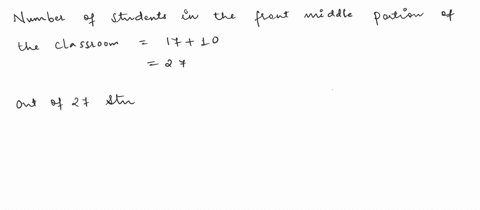 Number of students in the front middle portion of
the classroom = 17 + 10
= 27
out of 27 stu